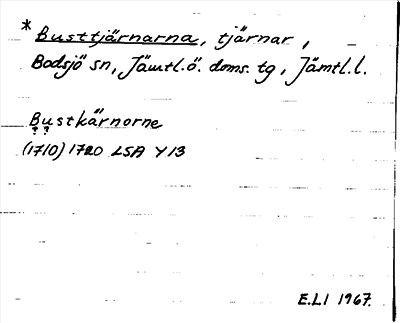 * Busttjärnarna, tjärnar,
Bodsjö sn, Jämtl.ö. doms. tg, Jämtl.l.
Bustkärnorne
? ?
(1710) 1720 LSA Y 13
E.LI 1967.